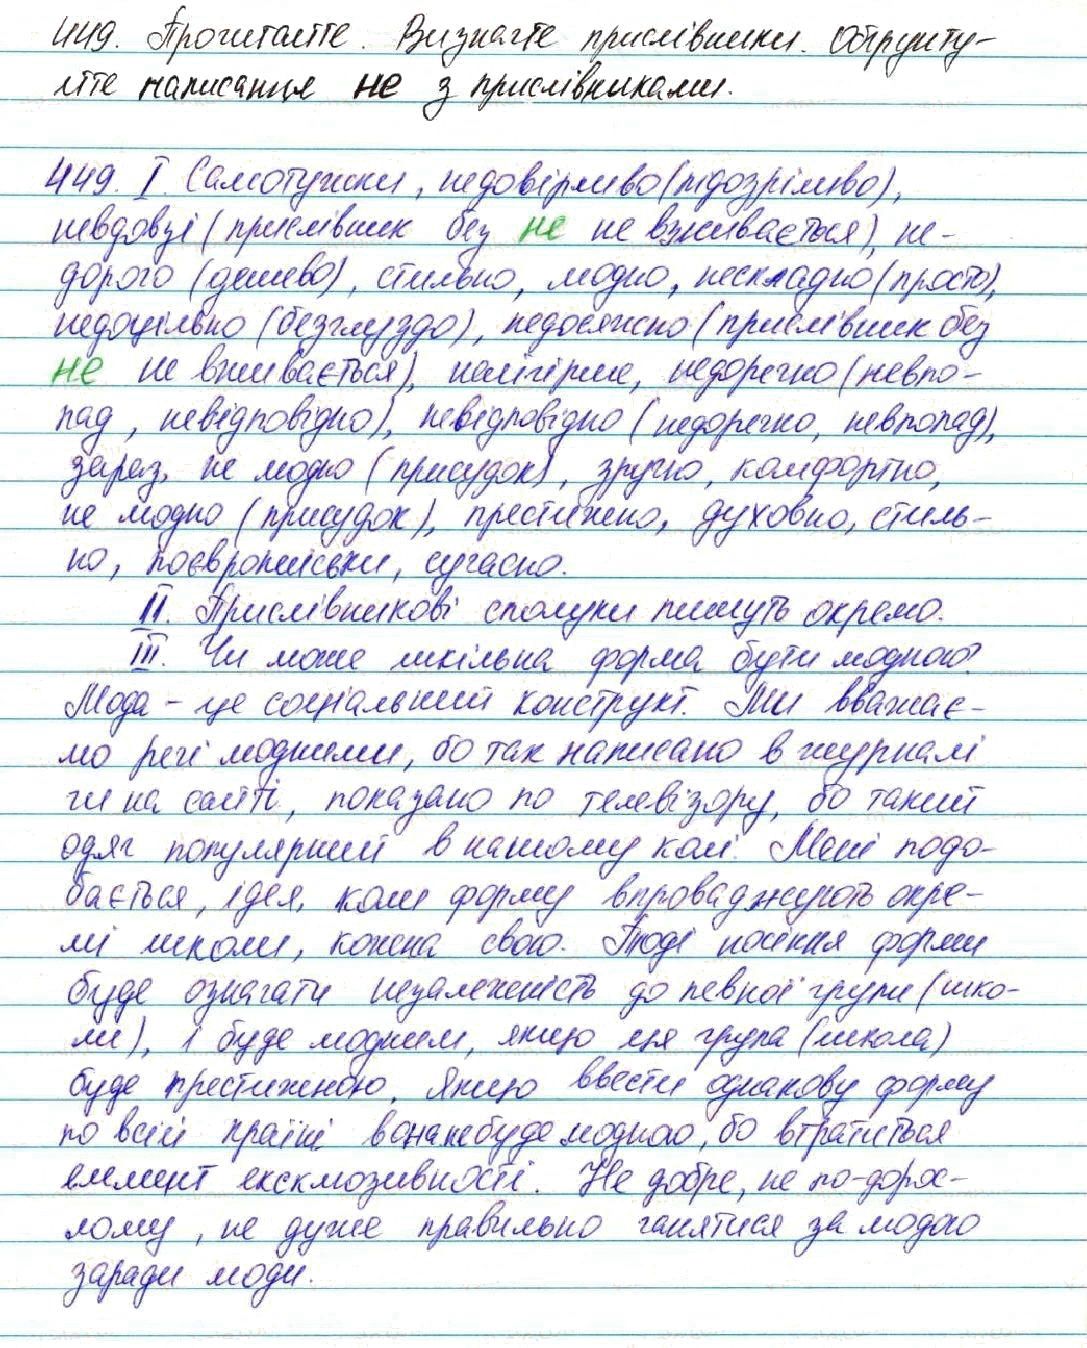 449. Прочитайте. Визначте прислівники. Обґрунту-
йте написання не з прислівниками.
449. I. Самотужки, недовірливо (підозріливо),
невдовзі (прислівник без не не вживається), не-
дорого (дешево), стильно, модно, нескладно (просто),
недоцільно (безглуздо), недосяжно (прислівник без
не не вживається), найгірше, недоречно (невпо-
пад, невідповідно), невідповідно (недоречно, невпопад),
зараз, не модно (присудок), зручно, комфортно,
не модно (присудок), престижно, духовно, стиль-
но, поєвропейськи, сучасно.
II. Прислівникові сполуки пишуть окремо.
III. Чи може шкільна форма бути модною?
Мода – це соціальний конструкт. Ми вважає-
мо речі модними, бо так написано в журналі
чи на сайті, показано по телевізору, бо такий
одяг популярний в нашому колі. Мені подо-
бається, ідея, коли форму впроваджують окре-
мі школи, кожна свою. Тоді носіння форми
буде означати незалежність до певної групи (шко-
ли), і буде модним, якщо ця група (школа)
буде престижною. Якщо ввести однакову форму
по всій країні вона не буде модною, бо втратиться
елемент ексклюзивності. Не добре, не по-дорос-
лому, не дуже правильно ганятися за модою
заради моди.